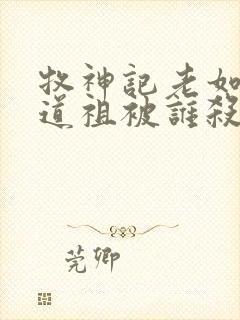 牧神記老如
道祖被誰殺
莞卿